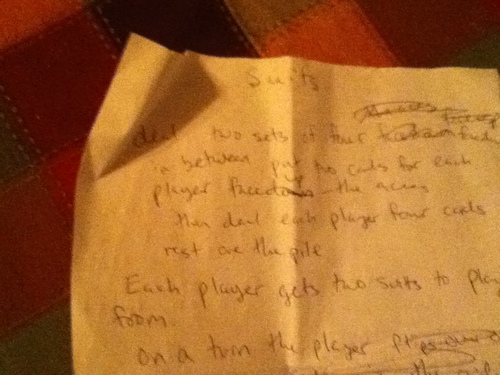 Suits
deal two sets of four
in between put two cards for each
player the
then deal each player four cards
rest are the pile
Each player gets two suits to play
from
on a turn the player
the